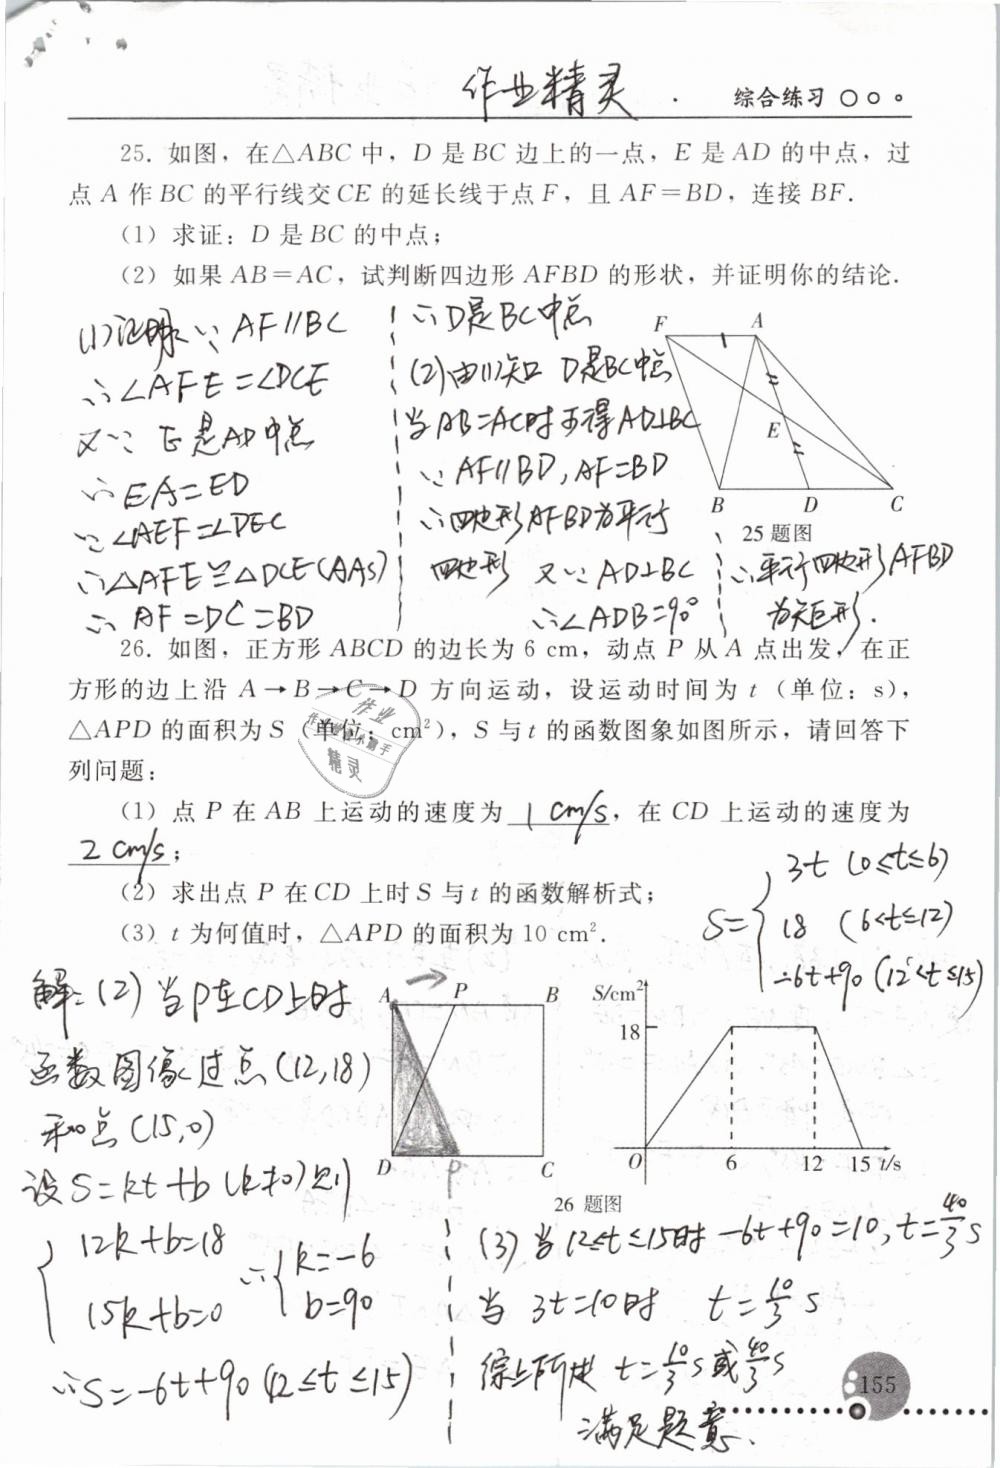 作业精灵
综合练习
25. 如图，在△ABC 中，D 是 BC 边上的一点，E 是 AD 的中点，过
点 A 作 BC 的平行线交 CE 的延长线于点 F，且 AF=BD，连接 BF.
(1) 求证：D 是 BC 的中点；
(2) 如果 AB=AC，试判断四边形 AFBD 的形状，并证明你的结论.
(1)证明：∵ AF//BC
∴∠AFE=∠DCE
又∵ E是AD中点
∴EA=ED
∵∠AEF=∠DEC
∴△AFE≌△DCE(AAS)
∴ AF=DC=BD
∴D是BC中点
(2)由(1)知 D是BC中点
当AB=AC时可得AD⊥BC
∵ AF//BD, AF=BD
∴四边形AFBD为平行
四边形 又∵AD⊥BC
∴∠ADB=90°
∴平行四边形AFBD
为矩形.
F A
E
B D C
25 题图
26. 如图，正方形 ABCD 的边长为 6 cm，动点 P 从 A 点出发，在正
方形的边上沿 A→B→C→D 方向运动，设运动时间为 t（单位：s），
△APD 的面积为 S（单位：cm²），S 与 t 的函数图象如图所示，请回答下
列问题：
作业
精灵
(1) 点 P 在 AB 上运动的速度为 1 cm/s，在 CD 上运动的速度为
2 cm/s；
(2) 求出点 P 在 CD 上时 S 与 t 的函数解析式；
(3) t 为何值时，△APD 的面积为 10 cm².
S= 3t (0≤t≤6)
18 (6<t≤12)
-6t+90 (12<t≤15)
解：(2) 当P在CD上时
函数图像过点(12,18)
和点(15,0)
设S=kt+b(k≠0)则
12k+b=18
15k+b=0
∴ k=-6
b=90
∴S=-6t+90 (12≤t≤15)
A P B
D P C
S/cm²
18
O 6 12 15 t/s
26 题图
(3) 当12≤t≤15时 -6t+90=10, t=40/3 s
当 3t=10时 t=10/3 s
综上所述 t=10/3 s或40/3 s
满足题意.
155